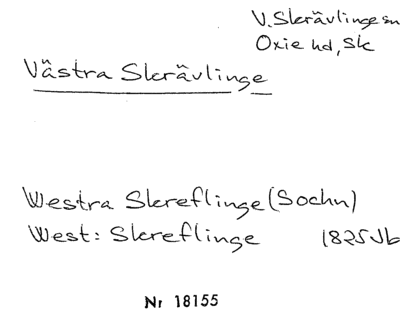 V. Skrävlinge sn
Oxie hd, Sk
Västra Skrävlinge
Westra Skreflinge (Sochn)
West: Skreflinge 1825 Jb
Nr 18155